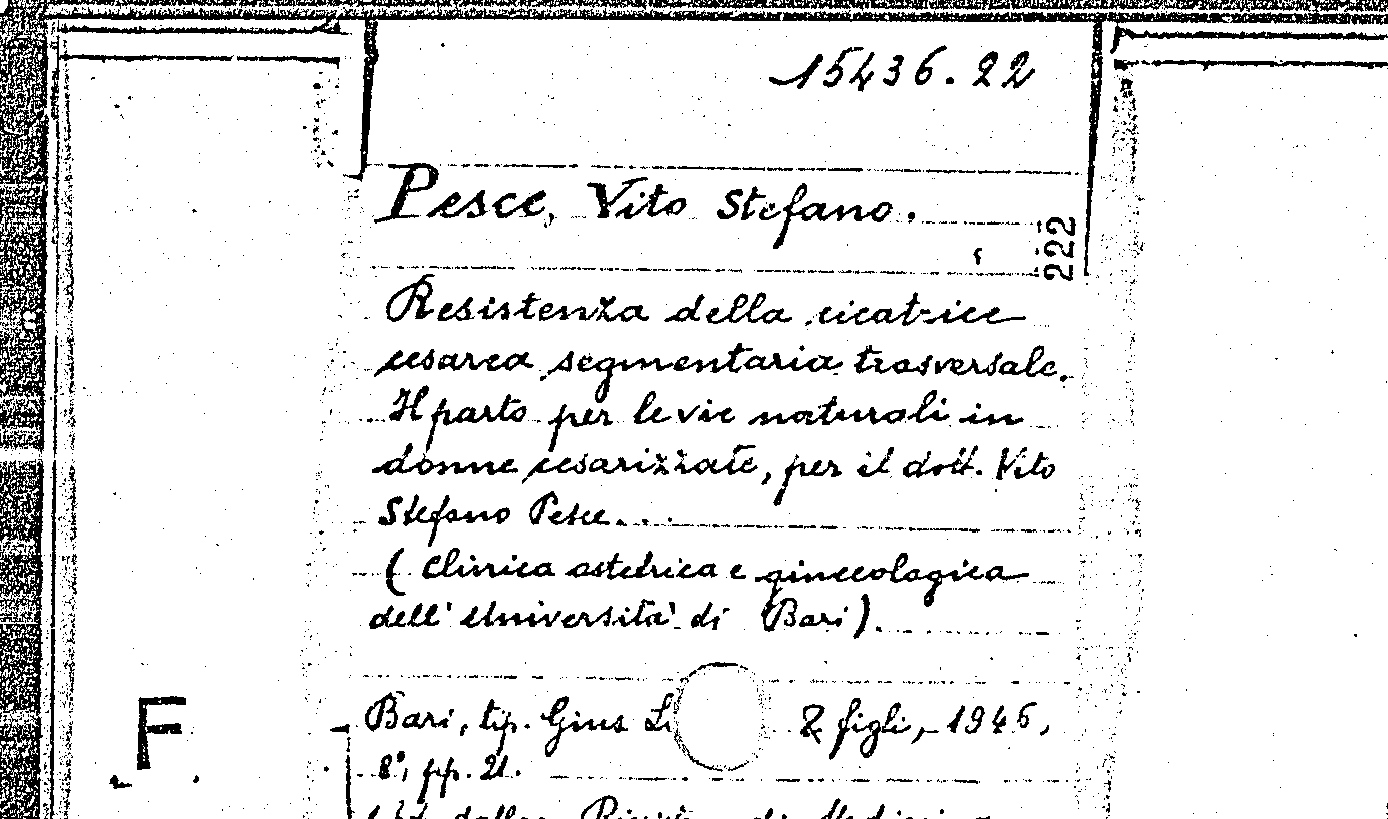 15436.22
Pesce, Vito Stefano.
222
Resistenza della cicatrice
cesarea segmentaria trasversale.
Il parto per le vie naturali in
donne cesarizzate, per il dott. Vito
Stefano Pesce...
(Clinica ostetrica e ginecologica
dell'Università di Bari).
Bari, tip. Gius & figli, 1946,
8°, pp. 21.
F